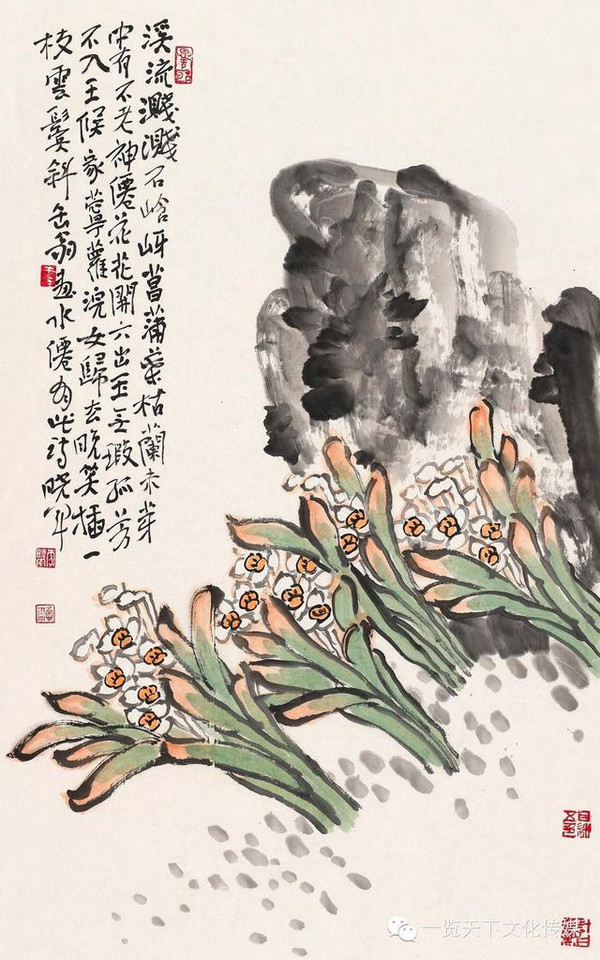 溪流溅溅石崡岈菖蒲叶枯蘭未芽
中有不老神僊花花開六出玉无瑕孤芳
不入王侯家苧蘿浣女歸去晚笑插一
枝雲鬓斜缶翁畫水僊有此詩曉軍
一览天下文化传媒